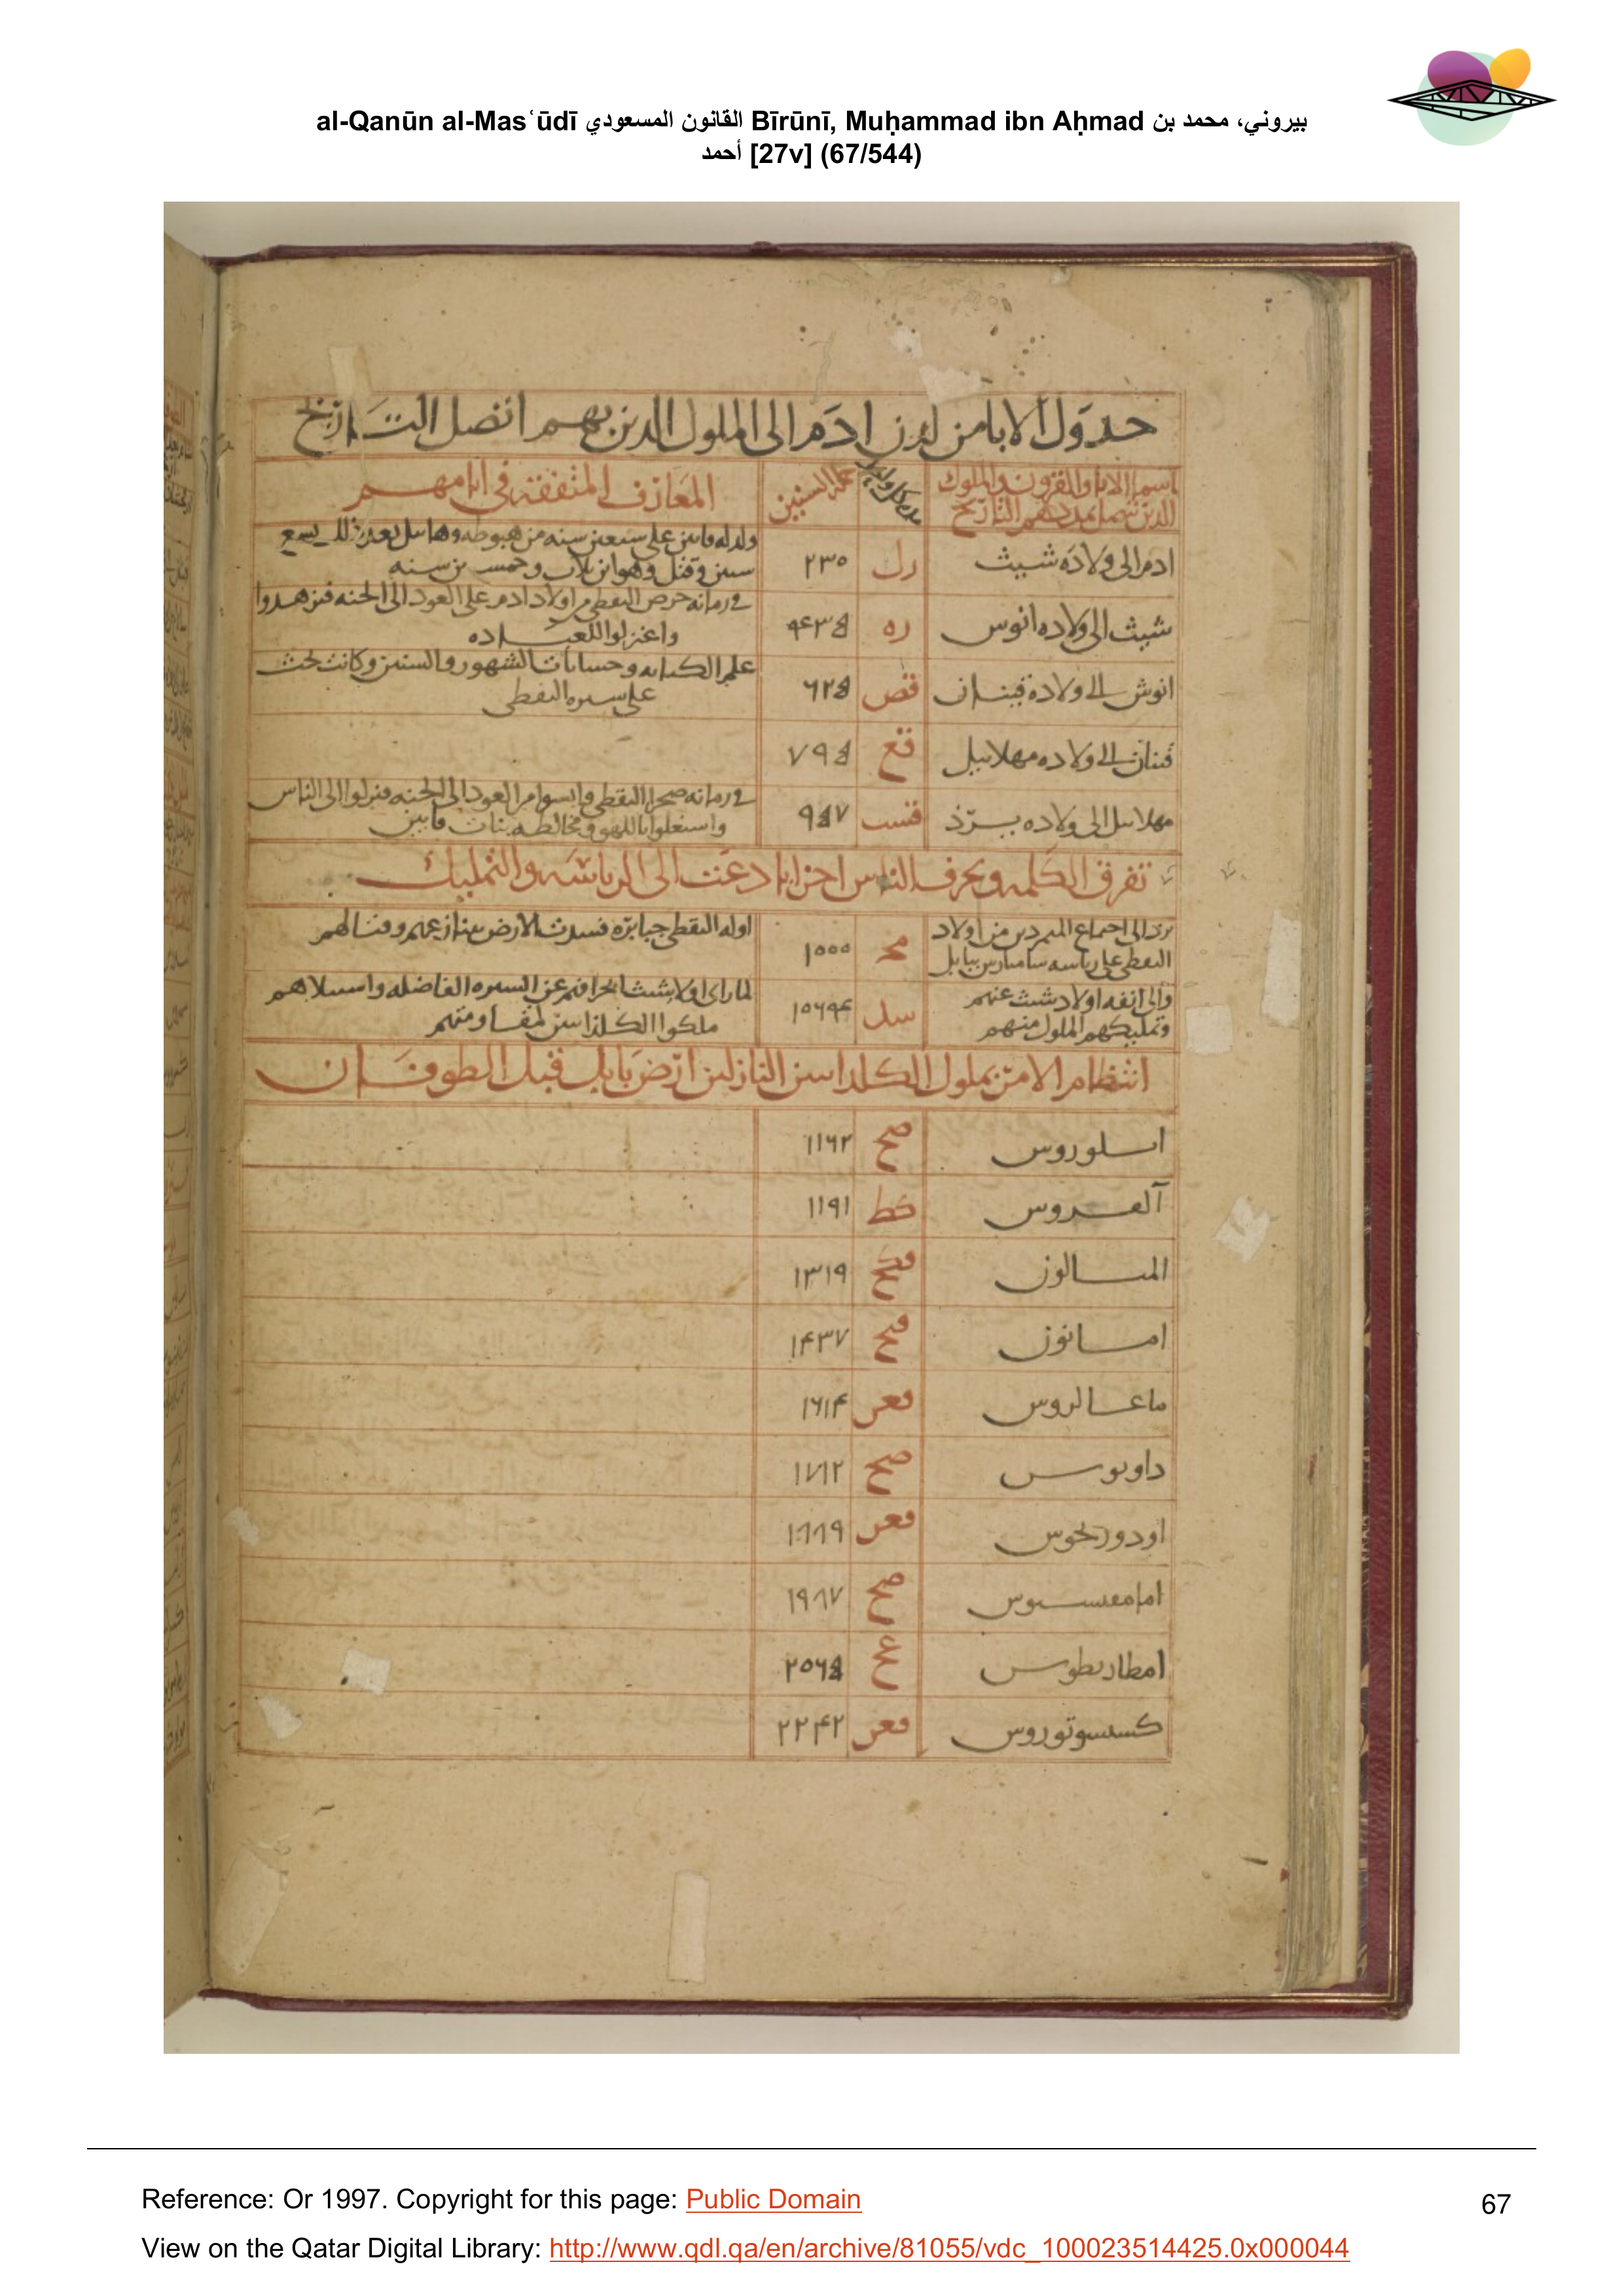 al-Qanūn al-Masʿūdī القانون المسعودي Bīrūnī, Muḥammad ibn Aḥmad بيروني، محمد بن
أحمد [27v] (67/544)
جدول الابا من لدن ادم الى الملول الدىن بهم اتصل التاريخ
اسم الابا والقرون والملوك
الدىن ىتصل بمددهم التاريخ
جملة السنين
المعارف المتفقه فى ايامهم
ادم الى ولاده شيث
رل
٢٣٠
ولد له قاىىن على سبعىن سنه من هبوطه وهاىىل بعد ذلك بسبع
سىىن وقتل وهو ابن ىلاث وخمسىن سنه
شيث الى ولاده انوس
ره
فى زمانه حرص النقطى من اولاد ادم على العود الى الجنه فتزهدوا
واعتزلوا للعباده
انوش الى ولادة قينان
قص
علم الكتابه وحسابات الشهور والسنىن وكانت تحث
على سىره النقطى
قينان الى ولاده مهلاىيل
قع
مهلاىىل الى ولاده يرذ
قسب
فى زمانه ضجر النقطى وايسوا من العود الى الجنه فنزلوا الى الناس
واشتغلوا باللهو ومخالطه بنات قايىن
تفرق الكلمه وتحزف الناس احزابا دعت الى الرياسه والتمليك
يرد الى اجماع المىمردىن من اولاد
النقطى على رياسه سامىارس ببابل
١٠٠٠
اوله النقطى جبابره فسدت الارض بىنازعهم وقتالهم
والى انفه اولاد شيث عنهم
وتمليكهم الملول منهم
لما راى اولاد شيث انحرافهم عن السىره الفاضله واستىلاهم
ملكوا الكلدانىىن لمقاومتهم
انتظام الامر بملول الكلدانىىن النازلىن ارض بابل قبل الطوفان
اىلوروس
صح
١١٦٢
العىروس
كط
١١٩١
المىىالون
قكح
١٣١٩
امىانون
قىح
١۴٣٧
ماعىالروس
قعر
١٦١۴
داوىوس
صح
١٧١٢
اودورىحوس
قعر
١٨٨٩
امامعىىىوس
صح
١٩٨٧
امطارىطوس
عح
كسىسوتوروس
قعر
٢٢۴٢
Reference: Or 1997. Copyright for this page: Public Domain
67
View on the Qatar Digital Library: http://www.qdl.qa/en/archive/81055/vdc_100023514425.0x000044